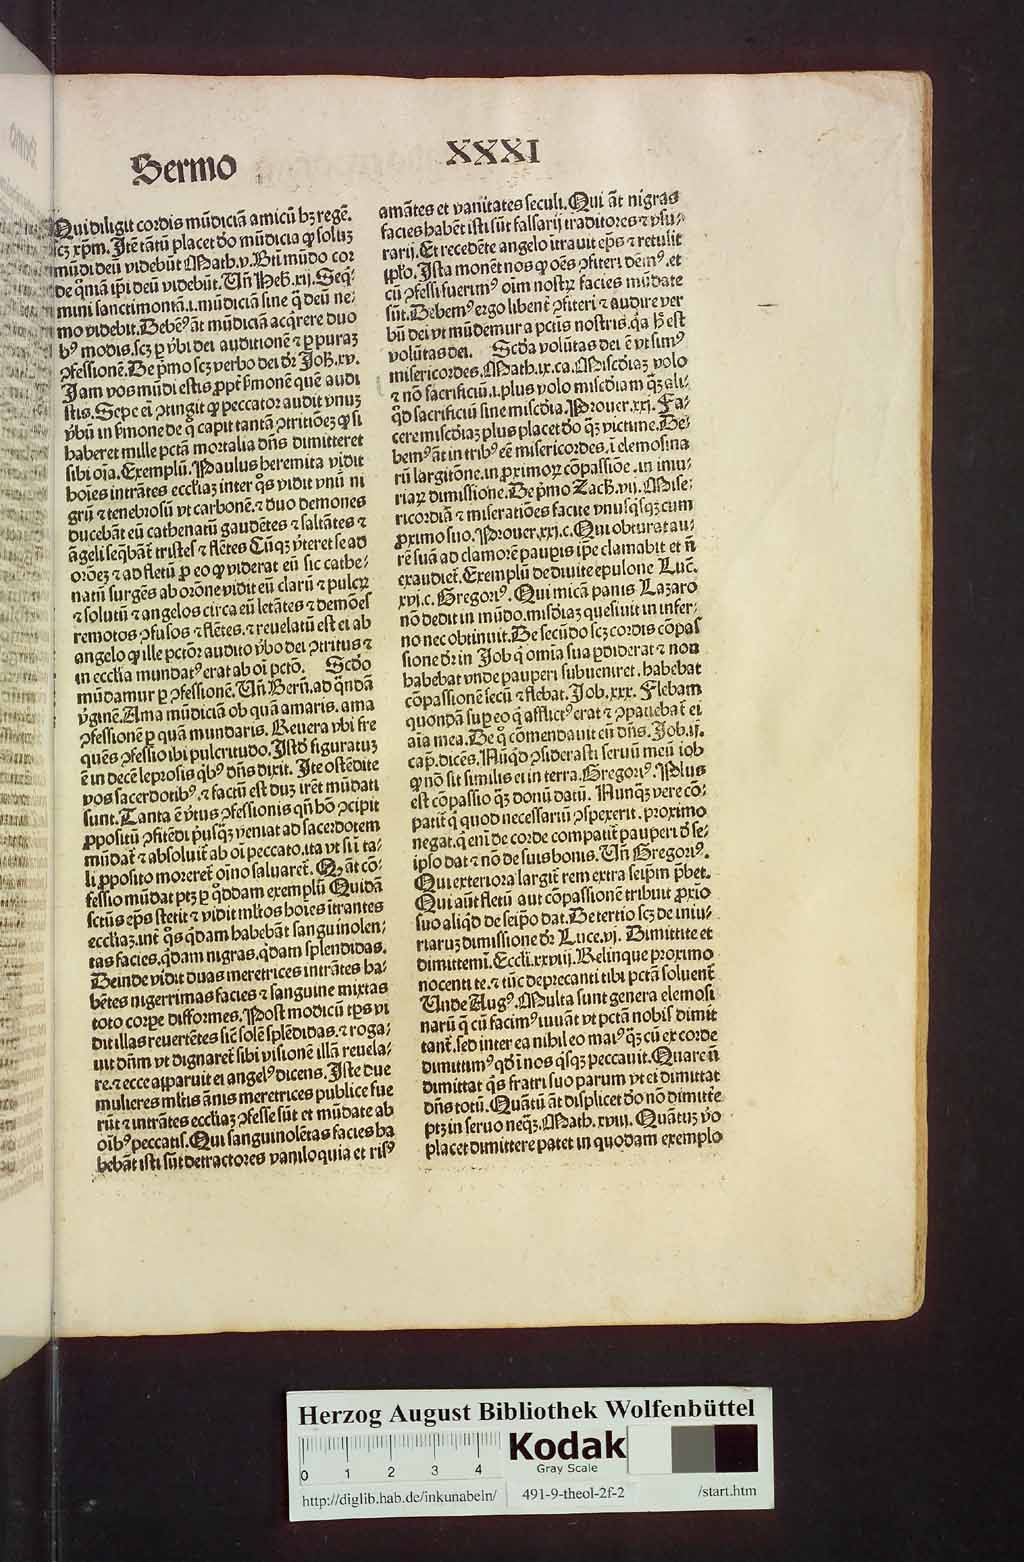 Sermo
XXXI
Qui diligit cordis mūdiciā amicū bꝫ regē.
scꝫ xp̄m. Itē tātū placet dō mūdicia ꝙ soluꝫ
mūdi deū videbūt Math. v. Bti mūdo cor
de qm̄iā ip̄i deū videbūt. Vn̄ Heb. xij. Seq̄-
mini sanctimoniā .i. mūdiciā sine q̄ deū ne-
mo videbit. Debem⁹ āt mūdiciā acq̄rere duo
b⁹ modis. scꝫ ꝑ v̄bi dei auditionē ⁊ ꝑ puraꝫ
ꝯfessionē. De p̄mo scꝫ verbo dei dr̄ Joh. xv.
Jam vos mūdi estis ꝓpt̄ s̄monē quē audi
stis. Sepe ei ꝯtingit ꝙ peccator audit vnuꝫ
v̄bū in s̄mone de q̄ capit tantā ꝯtritiōeꝫ ꝙ si
haberet mille pctā mortalia dn̄s dimitteret
sibi oīa. Exemplū. Paulus heremita vidit
hoīes intrātes eccliaꝫ inter q̄s vidit vnū ni
grū ⁊ tenebrosū vt carbonē. ⁊ duo demones
ducebāt eū cathenatū gaudētes ⁊ saltātes ⁊
āgeli seq̄bāt̄ tristes ⁊ flētes Cūqꝫ v̄teret se ad
orōeꝫ ⁊ ad fletū ꝓ eo ꝙ viderat eū sic cathe-
natū surgēs ab orōne vidit eū clarū ⁊ pulcꝝ
⁊ solutū ⁊ angelos circa eū letātes ⁊ demōes
remotos ꝯfusos ⁊ flētes. ⁊ reuelatū est ei ab
angelo ꝙ ille pctōr audito v̄bo dei ꝯtritus ⁊
in ecclia mundat⁹ erat ab oī pctō. Scdo
mūdamur ꝑ ꝯfessionē. Vn̄ Bern̄. ad q̄ndā
v̄ginē. Ama mūdiciā ob quā amaris. ama
ꝯfessionē ꝑ quā mundaris. Reuera vbi fre
quēs ꝯfessio ibi pulcritudo. Istd̄ figuratuꝫ
ē in decē leprosis q̄b⁹ dn̄s dixit. Ite ostēdite
vos sacerdotib⁹. ⁊ factū est duꝫ irēt mūdati
sunt. Tanta ē v̄tus ꝯfessionis qn̄ hō ꝯcipit
ꝓpositū ꝯfitēdi p̄usqꝫ veniat ad sacerdotem
mūdat̄ ⁊ absoluit̄ ab oī peccato. ita vt si ī ta-
li ꝓposito moreret̄ oīno saluaret̄. Qꝫ āt cō-
fessio mūdat ptꝫ ꝑ q̄ddam exemplū Quidā
sctūs ep̄s stetit ⁊ vidit ml̄tos hoīes ītrantes
eccliaꝫ. int̄ q̄s q̄dam habebāt sanguinolen-
tas facies. q̄dam nigras. q̄dam splendidas.
Deinde vidit duas meretrices intrātes ha-
bētes nigerrimas facies ⁊ sanguine mixtas
toto corpe difformes. Post modicū tp̄s vi
dit illas reuertētes sic̄ sole splēdidas. ⁊ roga-
uit dn̄m vt dignaret̄ sibi visionē illā reuela-
re. ⁊ ecce aparuit ei angel⁹ dicens. Iste due
mulieres ml̄tis ānis meretrices publice fue
rūt ⁊ intrātes eccliaꝫ ꝯfesse sūt et mūdate ab
oīb⁹ peccatis. Qui sanguinolētas facies ha
bebāt isti sūt detractores vaniloquia et ris⁹
amātes et vanitates seculi. Qui āt nigras
facies habēt isti sūt falsarij traditores ⁊ vsu-
rarij. Et recedēte angelo ītrauit ep̄s ⁊ retulit
ip̄ō. Ista monēt nos ꝙ oēs ꝯfiteri dem⁹. et
cū ꝯfessi fuerim⁹ oim nostꝝ facies mūdate
sūt. Debem⁹ ergo libent̄ ꝯfiteri ⁊ audire ver
bū dei vt mūdemur a pctis nostris. q̄a h̄ est
volūtas dei. Scda volūtas dei ē vt sim⁹
misericordes. Math. ix. ca. Miscdiaꝫ volo
⁊ nō sacrificiū .i. plus volo miscdiam qꝫ ali-
qd̄ sacrificiū sine miscdia. Prouer. xxj. Fa-
cere miscdiaꝫ plus placet dō qꝫ victime. De-
bem⁹ āt in trib⁹ eē misericordes. ī elemosina
rū largitōne. in ꝓximoꝝ cōpassiōe. in iniu-
riaꝝ dimissione. De p̄mo Zach. vij. Mise-
ricordiā ⁊ miseratiōes facite vnusqꝫqꝫ cum
ꝓximo suo. Prouer. xxj. c. Qui obturat au-
rē suā ad clamorē paupis ip̄e clamabit et n̄
exaudiet̄. Exemplū de diuite epulone Luc̄.
xvj. c. Gregori⁹. Qui micā panis Lazaro
nō dedit in mūdo. miscdiaꝫ quesiuit in infer-
no nec obtinuit. De secūdo scꝫ cordis cōpas
sione dr̄ in Job q̄ omīa sua ꝑdiderat ⁊ non
habebat vnde pauperi subueniret. habebat
cōpassionē secū ⁊ flebat. Job. xxx. Flebam
quondā sup eo q̄ afflict⁹ erat ⁊ ꝯpatiebat̄ ei
aīa mea. De q̄ cōmendauit eū dn̄s. Job. ij.
cap̄. dicēs. Nūqd̄ ꝯsiderasti seruū meū iob
ꝙ nō sit similis ei in terra. Gregori⁹. Plus
est cōpassio qꝫ donū datū. Nunqꝫ vere cō-
patit̄ q̄ quod necessariū ꝯspexerit. proximo
negat. q̄ eni de corde compatit̄ pauperi d̄ se-
ipso dat ⁊ nō de suis bonis. Vn̄ Gregori⁹.
Qui exteriora largit̄ rem extra seip̄m p̄bet.
Qui aūt fletū aut cōpassionē tribuit ꝓxīo
suo aliqd̄ de seip̄o dat. De tertio scꝫ de iniu-
riaruꝫ dimissione dr̄ Luce. vj. Dimittite et
dimittemī. Eccli. xxviij. Relinque proximo
nocenti te. ⁊ tūc deprecanti tibi pctā soluent̄
Unde Aug⁹. Multa sunt genera elemosi
narū q̄ cū facim⁹ iuuāt vt pctā nobis dimit
tant̄. sed inter ea nihil eo mai⁹ qꝫ cū ex corde
dimittim⁹ qd̄ ī nos q̄sqꝫ peccauit. Quare n̄
dimittat q̄s fratri suo parum vt ei dimittat
dn̄s totū. Quātū āt displicet dō nō dimitt̄e
ptꝫ in seruo neqꝫ. Math. xviij. Quātuꝫ v̄o
placet dimittere patet in quodam exemplo
Herzog August Bibliothek Wolfenbüttel
0 1 2 3 4
Kodak
Gray Scale
http://diglib.hab.de/inkunabeln/ 491-9-theol-2f-2 /start.htm